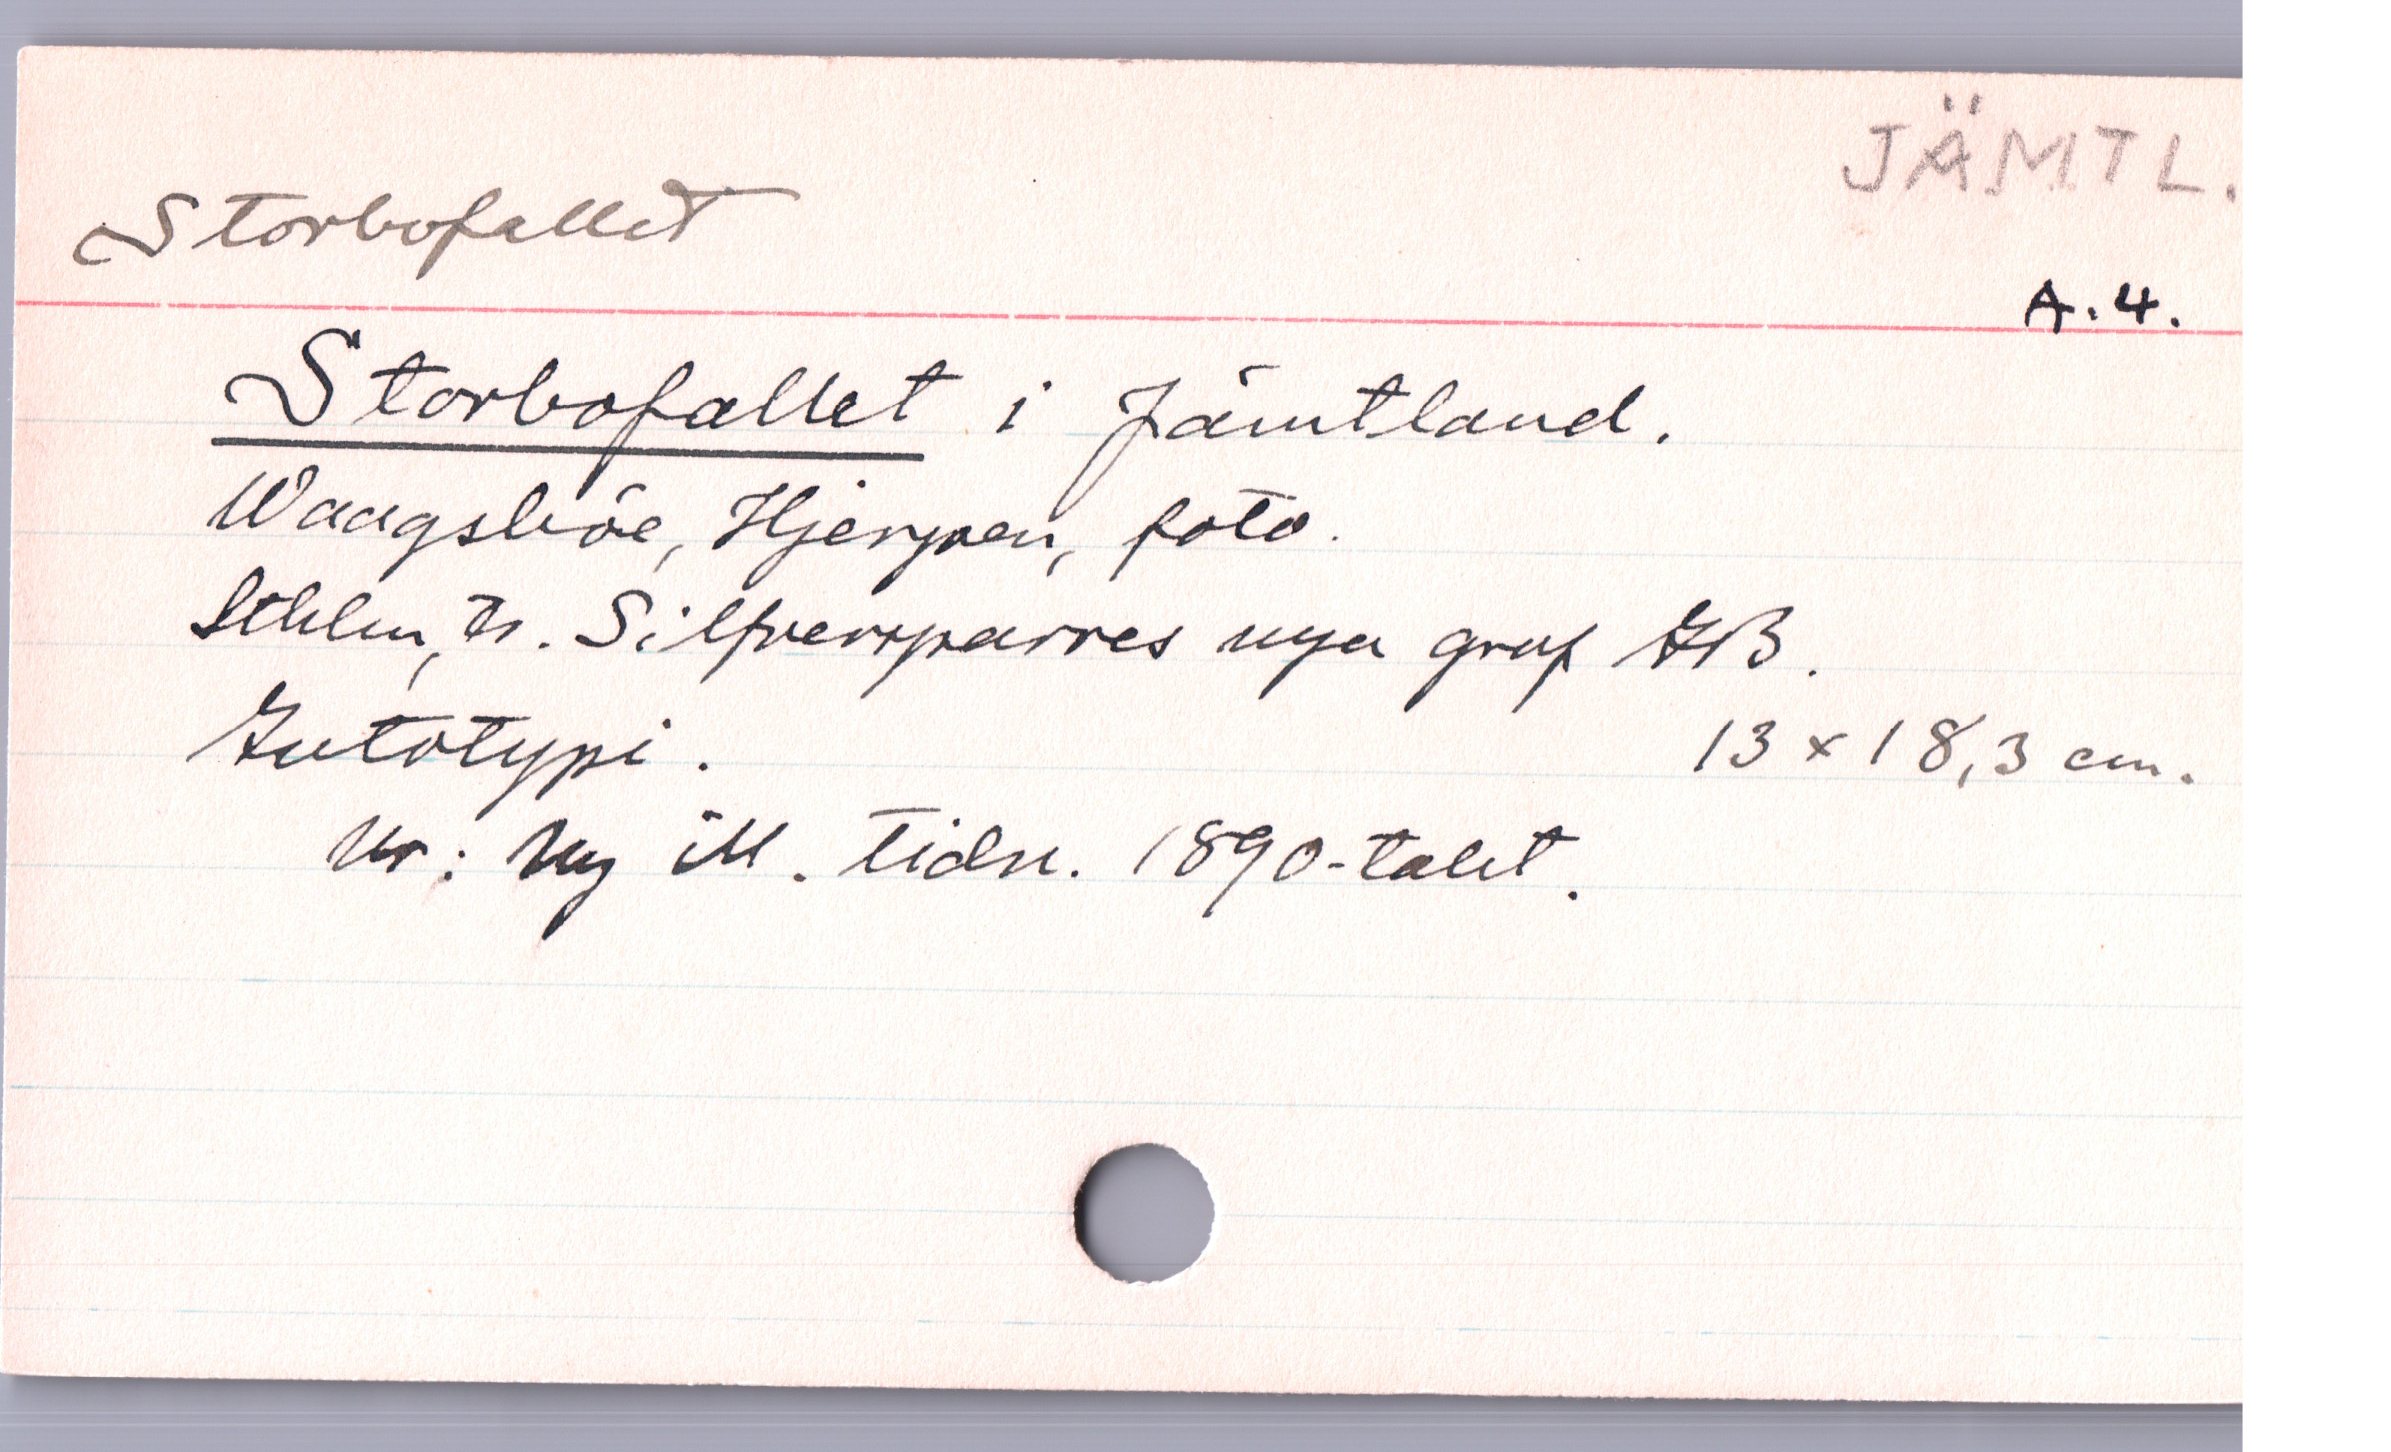 JÄMTL.
Storbofallet
A.4.
Storbofallet i Jämtland.
Waagsböe, Hjerpen, foto.
Sthlm, tr. Silfversparres nya graf AB.
Autotypi. 13 x 18,3 cm.
Ur: Ny ill. tidn. 1890-talet.